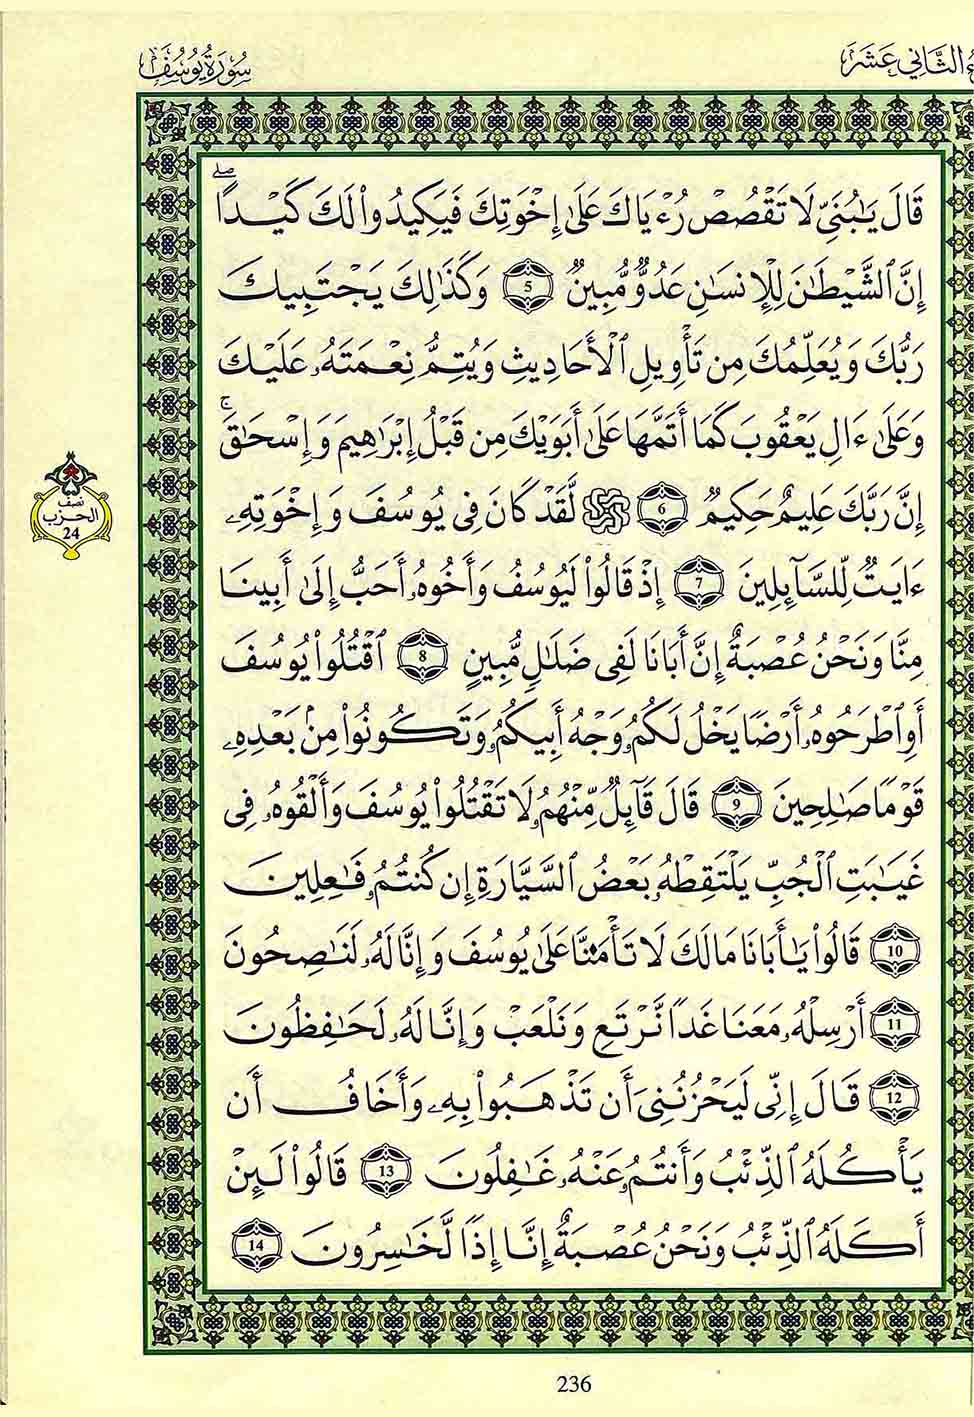 ءالثَّانِي عَشَرَ
سُورَةُ يُوسُفَ
قَالَ يَـٰبُنَيِّ لَا تَقْصُصْ رُءْيَاكَ عَلَىٰ إِخْوَتِكَ فَيَكِيدُوا۟ لَكَ كَيْدًا ۖ
إِنَّ ٱلشَّيْطَـٰنَ لِلْإِنسَـٰنِ عَدُوٌّ مُّبِينٌ 5 وَكَذَٰلِكَ يَجْتَبِيكَ
رَبُّكَ وَيُعَلِّمُكَ مِن تَأْوِيلِ ٱلْأَحَادِيثِ وَيُتِمُّ نِعْمَتَهُۥ عَلَيْكَ
وَعَلَىٰٓ ءَالِ يَعْقُوبَ كَمَا أَتَمَّهَا عَلَىٰ أَبَوَيْكَ مِن قَبْلُ إِبْرَٰهِيمَ وَإِسْحَـٰقَ ۚ
إِنَّ رَبَّكَ عَلِيمٌ حَكِيمٌ 6 لَّقَدْ كَانَ فِى يُوسُفَ وَإِخْوَتِهِۦ
ءَايَتٌ لِّلسَّآئِلِينَ 7 إِذْ قَالُوا۟ لَيُوسُفُ وَأَخُوهُۥ أَحَبُّ إِلَىٰ أَبِينَا
مِنَّا وَنَحْنُ عُصْبَةٌ إِنَّ أَبَانَا لَفِى ضَلَـٰلٍ مُّبِينٍ 8 ٱقْتُلُوا۟ يُوسُفَ
أَوِ ٱطْرَحُوهُۥ أَرْضًا يَخْلُ لَكُمُۥ وَجْهُ أَبِيكُمُۥ وَتَكُونُوا۟ مِنۢ بَعْدِهِۦ
قَوْمًا صَـٰلِحِينَ 9 قَالَ قَآئِلٌ مِّنْهُمُۥ لَا تَقْتُلُوا۟ يُوسُفَ وَأَلْقُوهُۥ فِى
غَيَـٰبَتِ ٱلْجُبِّ يَلْتَقِطْهُۥ بَعْضُ ٱلسَّيَّارَةِ إِن كُنتُمُۥ فَـٰعِلِينَ
10 قَالُوا۟ يَـٰٓأَبَانَا مَالَكَ لَا تَأْمَ۫نَّا عَلَىٰ يُوسُفَ وَإِنَّا لَهُۥ لَنَـٰصِحُونَ
11 أَرْسِلْهُۥ مَعَنَا غَدًا نَّرْتَعِ وَنَلْعَبْ وَإِنَّا لَهُۥ لَحَـٰفِظُونَ
12 قَالَ إِنِّى لَيَحْزُنُنِىَ أَن تَذْهَبُوا۟ بِهِۦ وَأَخَافُ أَن
يَأْكُلَهُ ٱلذِّئْبُ وَأَنتُمُۥ عَنْهُۥ غَـٰفِلُونَ 13 قَالُوا۟ لَئِنْ
أَكَلَهُ ٱلذِّئْبُ وَنَحْنُ عُصْبَةٌ إِنَّا إِذًا لَّخَـٰسِرُونَ 14
نصف
الحزب
24
236